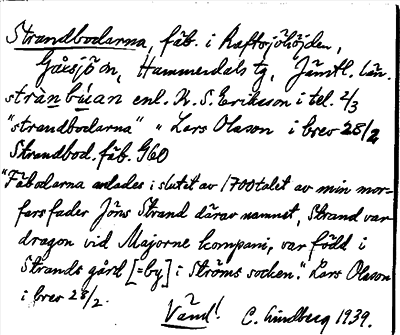 Strandbodarna, fäb. i Raftsjöhöjden,
Gåxsjö sn, Hammerdals tg, Jämtl. län.
stràn búan enl. K. S. Eriksson i tel. 2/3
"strandbodarna" " Lars Olsson i brev 28/2
Strandbod. fäb. G60
"Fäbodarna anlades i slutet av 1700talet av min mor-
farsfader Jöns Strand därav namnet, Strand var
dragon vid Majorne kompani, var född i
Strands gård [=by] i Ströms socken." Lars Olsson
i brev 28/2.
Vänd! C. Lindberg 1939.